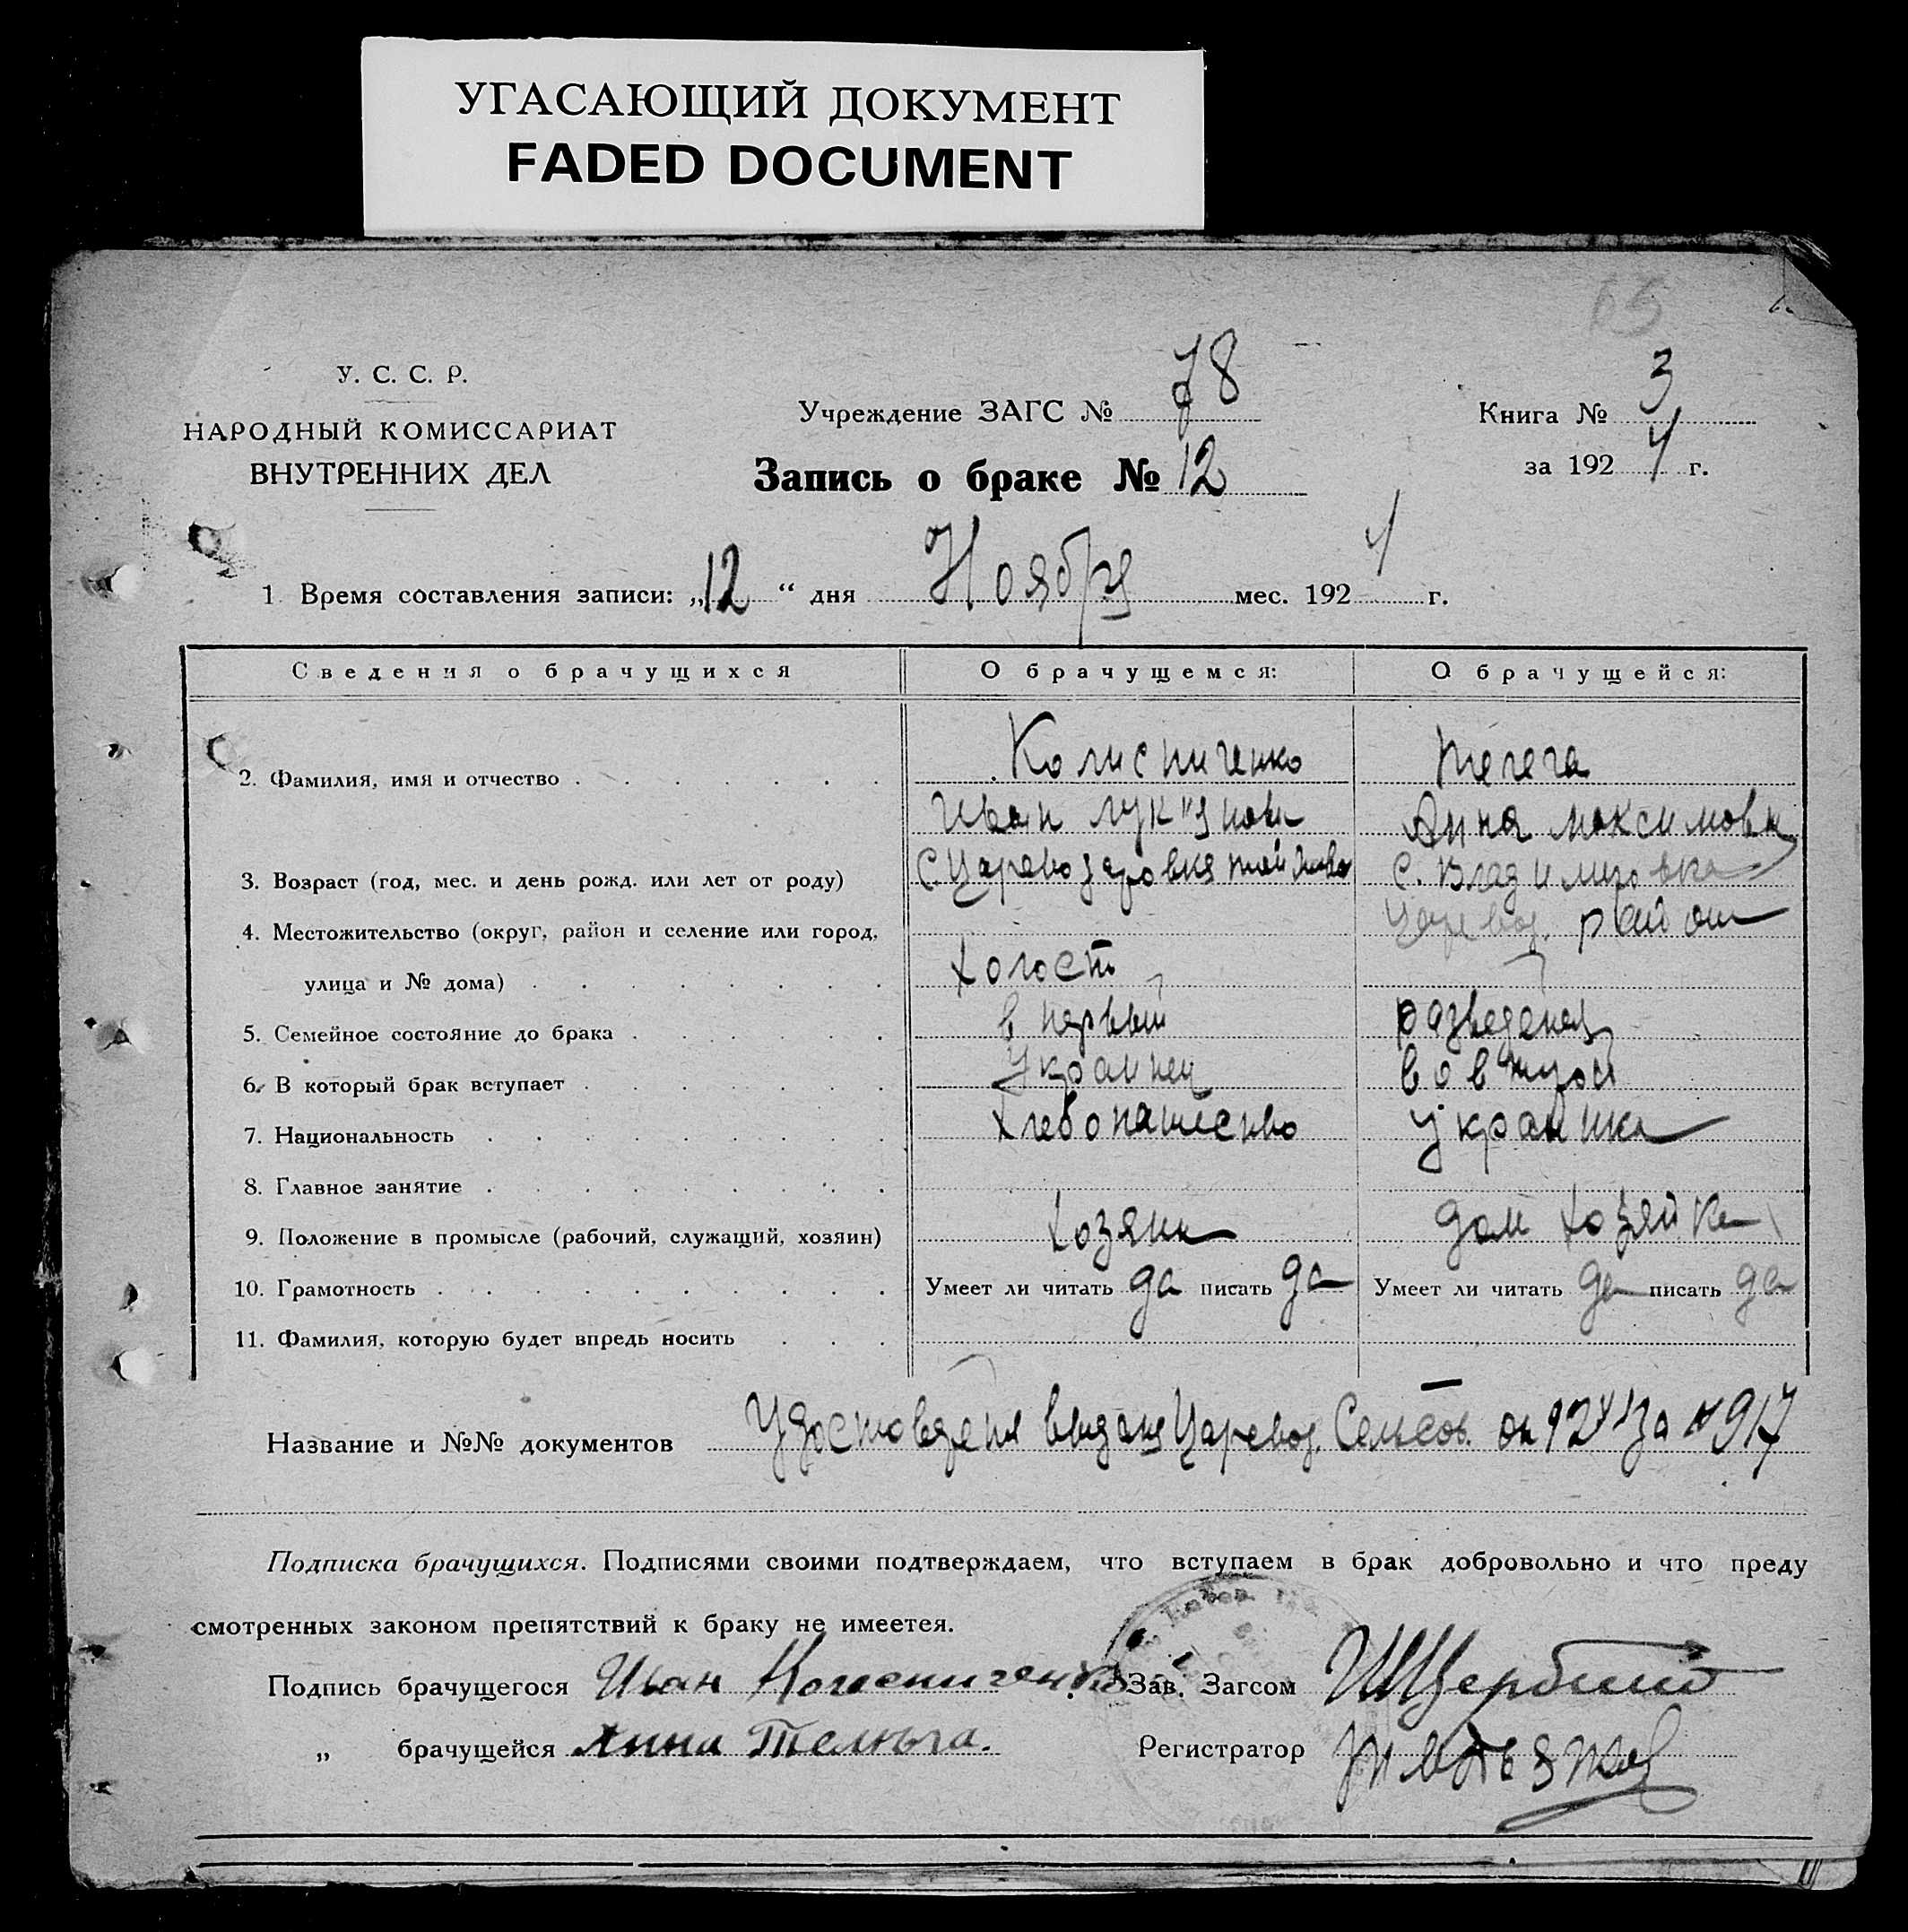 УГАСАЮЩИЙ ДОКУМЕНТ
FADED DOCUMENT
65
У. С. С. Р.
НАРОДНЫЙ КОМИССАРИАТ
ВНУТРЕННИХ ДЕЛ
Учреждение ЗАГС № 78
Запись о браке № 12
Книга № 3
за 1924 г.
1. Время составления записи: „12“ дня Ноября мес. 1924 г.
Сведения о брачущихся О брачущемся: О брачущейся:
2. Фамилия, имя и отчество Колисниченко
Иван Анна Максимовн
3. Возраст (год, мес. и день рожд. или лет от роду) С. С. Владимировка
4. Местожительство (округ, район и селение или город, Царевод. район
улица и № дома) Холост
5. Семейное состояние до брака в первый разведеная
6. В который брак вступает Украинец во второй
7. Национальность Хлебопашество Украинка
8. Главное занятие
9. Положение в промысле (рабочий, служащий, хозяин) Хозяин дом хозяйка
10. Грамотность Умеет ли читать да писать да Умеет ли читать да писать да
11. Фамилия, которую будет впредь носить
Название и №№ документов выдан Царевод. Сельсов. 924 за № 917
Подписка брачущихся. Подписями своими подтверждаем, что вступаем в брак добровольно и что преду
смотренных законом препятствий к браку не имеетея.
Подпись брачущегося Иван Колесниченко Зав. Загсом
„ брачущейся Анна Телюга. Регистратор